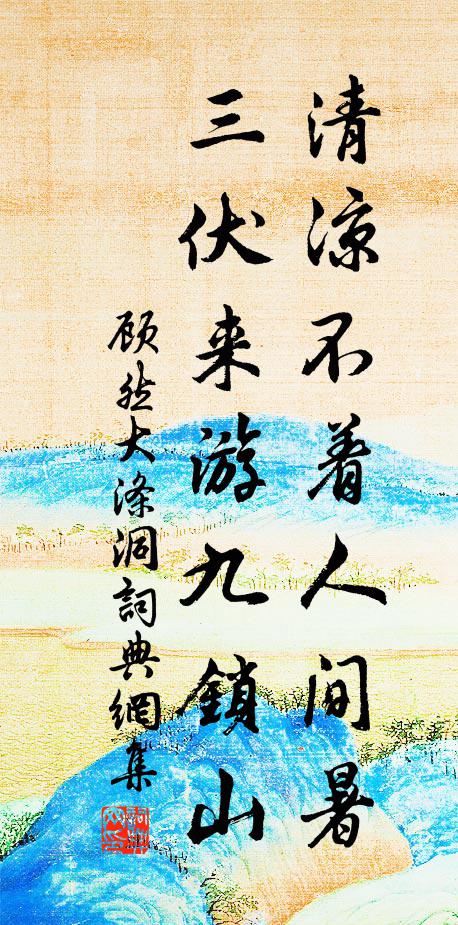 清凉不着人间暑
三伏来游九鎖山
顾然大涤洞詞典網集